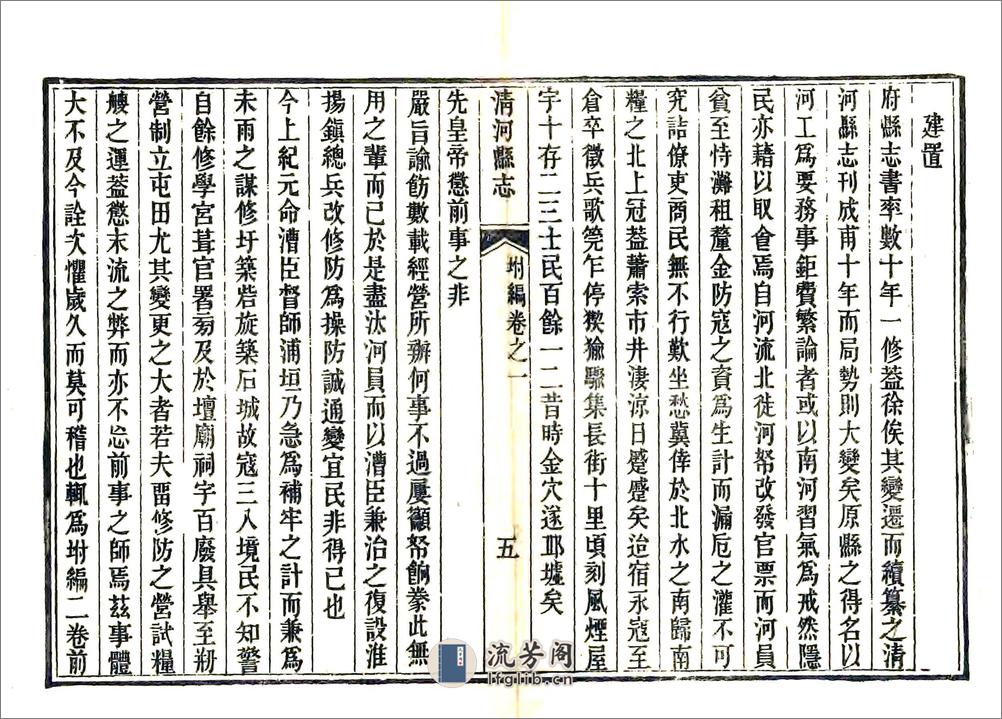 建置
府縣志書率數十年一修葢徐俟其變遷而續纂之清
河縣志刊成甫十年而局勢則大變矣原縣之得名以
河工爲要務事鉅費繁論者或以南河習氣爲戒然隱
民亦藉以取食焉自河流北徙河帑改發官票而河員
貧至恃灘租釐金防寇之資爲生計而漏卮之灌不可
究詰僚吏商民無不行歎坐愁冀倖於北水之南歸南
糧之北上冠葢蕭索市井淒涼日蹙蹙矣迨宿永寇至
倉卒徵兵歌筦乍停猰貐驟集長街十里頃刻風煙屋
宇十存二三士民百餘一二昔時金穴遂邱墟矣
先皇帝懲前事之非
清河縣志
坿編卷之一
五
嚴旨諭飭數載經營所辦何事不過屢籲帑餉豢此無
用之輩而已於是盡汰河員而以漕臣兼治之復設淮
揚鎭總兵改修防爲操防誠通變宜民非得已也
今上紀元命漕臣督師浦垣乃急爲補牢之計而兼爲
未雨之謀修圩築砦旋築石城故寇三入境民不知警
自餘修學宮葺官署芻及於壇廟祠宇百廢具舉至刱
營制立屯田尤其變更之大者若夫畱修防之營試糧
艘之運葢懲末流之弊而亦不忘前事之師焉茲事體
大不及今詮次懼歲久而莫可稽也輒爲坿編二卷前
流芳阁
lfglib.cn